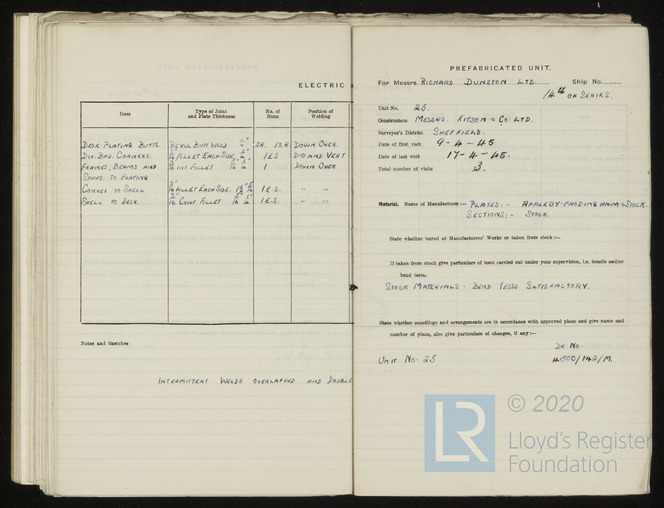 ELECTRIC
Item
Type of Joint and Plate Thickness
No. of Runs
Position of Welding
DECK PLATING BUTTS. BEVEL BUTT WELD 2R. 1S.R. DOWN OVER
DIV. BHD. CORNERS. FILLET EACH SIDE. 1 E.S DO AND VERT
FRAMES, BEAMS AND INT FILLET 1 DOWN OVER
STIFFS. TO PLATING
TO SHELL FILLET EACH SIDE. 1 E.S. " "
SHELL TO DECK. CONT FILLET 1 E.S. " "
Notes and Sketches
INTERMITTENT WELDS OVERLAPPED AND DOUBLE
PREFABRICATED UNIT.
For Messrs. RICHARD DUNSTON LTD. Ship No.
14th OF SERIES.
Unit No. 25.
Constructors MESSRS. KITSON & CO LTD.
Surveyor's District SHEFFIELD.
Date of first visit 9-4-45
Date of last visit 17-4-45.
Total number of visits 3.
Material. Name of Manufacturer:— PLATES:- APPLEBY-FRODINGHAM & STOCK.
SECTIONS:- STOCK.
State whether tested at Manufacturers' Works or taken from stock:—
If taken from stock give particulars of tests carried out under your supervision, i.e. tensile and/or
bend tests.
STOCK MATERIALS - BEND TESTS SATISFACTORY.
State whether scantlings and arrangements are in accordance with approved plans and give name and
number of plans, also give particulars of changes, if any:—
DR NO.
UNIT NO. 25 4500/142/M.
LR
© 2020
Lloyd's Register
Foundation